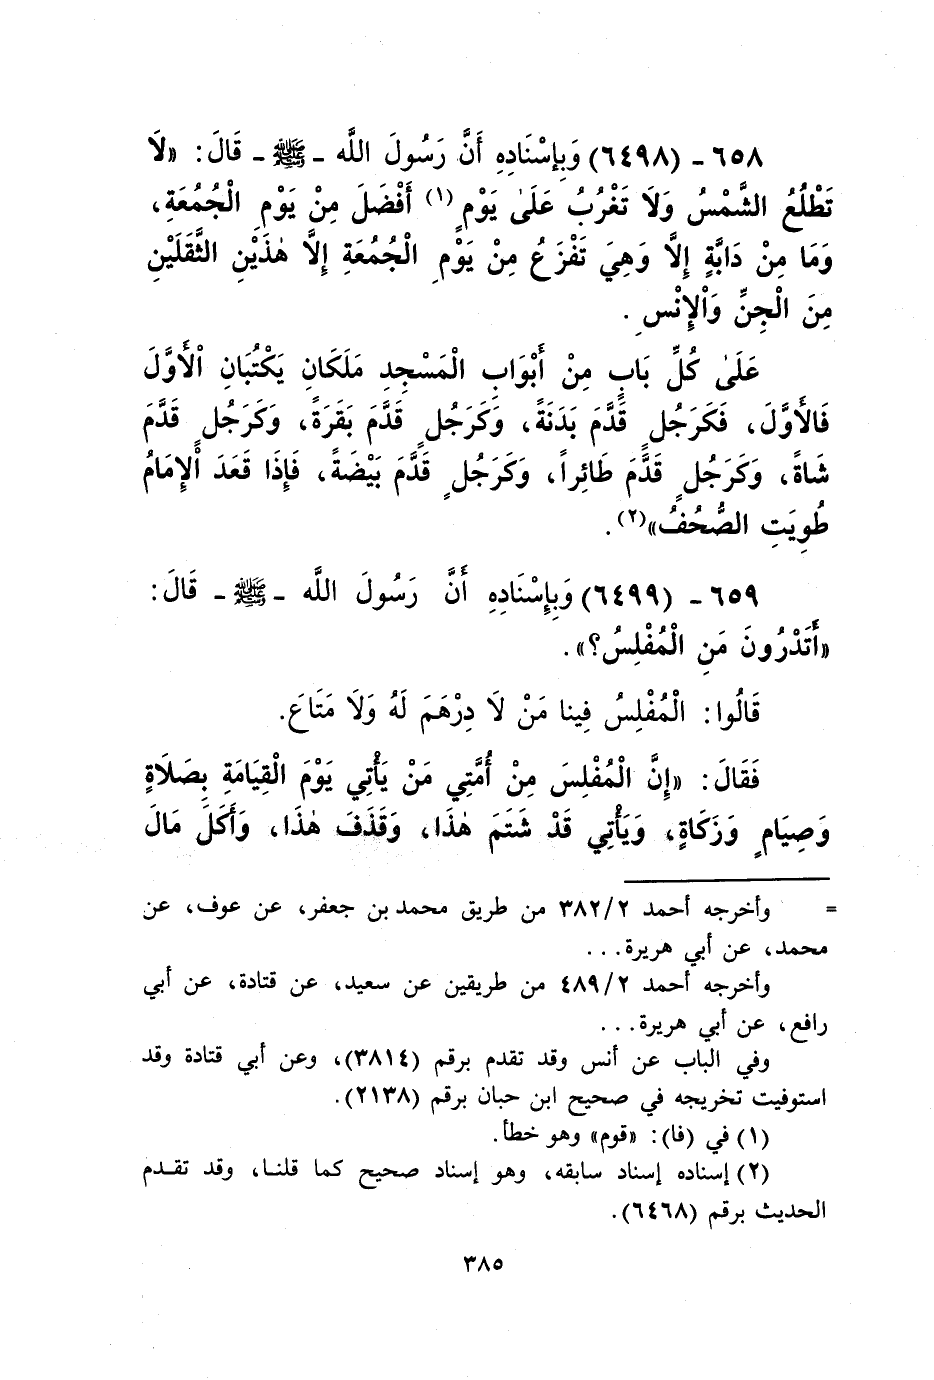 ٦٥٨ ـ (٦٤٩٨) وَبِإسْنَادِهِ أَنَّ رَسُولَ اللَّه ـ ﷺ ـ قَالَ: «لَا
تَطْلُعُ الشَّمْسُ وَلَا تَغْرُبُ عَلَىٰ يَوْمٍ(١) أَفْضَلَ مِنْ يَوْمِ الْجُمُعَةِ،
وَمَا مِنْ دَابَّةٍ إِلَّا وَهِيَ تَفْزَعُ مِنْ يَوْمِ الْجُمُعَةِ إِلَّا هٰذَيْنِ الثَّقَلَيْنِ
مِنَ الْجِنِّ وَاْلإِنْسِ.
عَلَىٰ كُلِّ بَابٍ مِنْ أَبْوَابِ الْمَسْجِدِ مَلَكَانِ يَكْتُبَانِ اْلأَوَّلَ
فَالأَوَّلَ، فَكَرَجُلٍ قَدَّمَ بَدَنَةً، وَكَرَجُلٍ قَدَّمَ بَقَرَةً، وَكَرَجُلٍ قَدَّمَ
شَاةً، وَكَرَجُلٍ قَدَّمَ طَائِراً، وَكَرَجُلٍ قَدَّمَ بَيْضَةً، فَإِذَا قَعَدَ اْلإِمَامُ
طُوِيَتِ الصُّحُفُ»(٢).
٦٥٩ ـ (٦٤٩٩) وَبِإِسْنَادِهِ أَنَّ رَسُولَ اللَّه ـ ﷺ ـ قَالَ:
«أَتَدْرُونَ مَنِ الْمُفْلِسُ؟».
قَالُوا: الْمُفْلِسُ فِينا مَنْ لَا دِرْهَمَ لَهُ وَلَا مَتَاعَ.
فَقَالَ: «إِنَّ الْمُفْلِسَ مِنْ أُمَّتِي مَنْ يَأْتِي يَوْمَ الْقِيَامَةِ بِصَلَاةٍ
وَصِيَامٍ وَزَكَاةٍ، وَيَأْتِي قَدْ شَتَمَ هٰذَا، وَقَذَفَ هٰذَا، وَأَكَلَ مَالَ
= وأخرجه أحمد ٣٨٢/٢ من طريق محمد بن جعفر، عن عوف، عن
محمد، عن أبي هريرة...
وأخرجه أحمد ٤٨٩/٢ من طريقين عن سعيد، عن قتادة، عن أبي
رافع، عن أبي هريرة...
وفي الباب عن أنس وقد تقدم برقم (٣٨١٤)، وعن أبي قتادة وقد
استوفيت تخريجه في صحيح ابن حبان برقم (٢١٣٨).
(١) في (فا): «قوم» وهو خطأ.
(٢) إسناده إسناد سابقه، وهو إسناد صحيح كما قلنا، وقد تقدم
الحديث برقم (٦٤٦٨).
٣٨٥